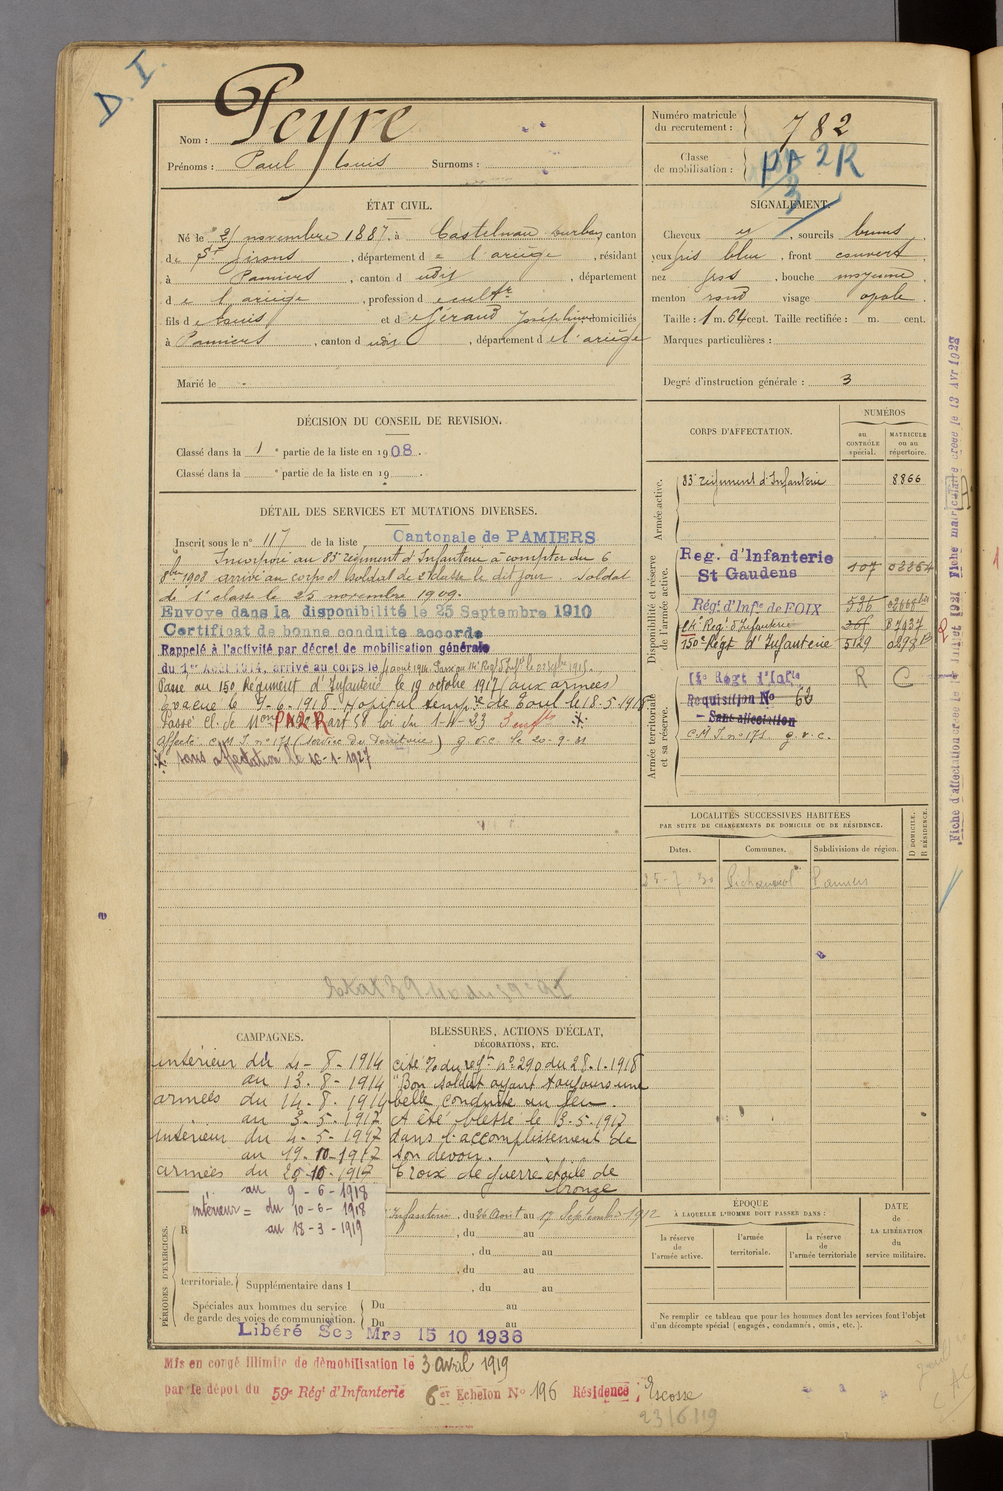 D. I.
Nom : Peyre
Prénoms : Paul Louis Surnoms :
Numéro matricule du recrutement : 782
Classe de mobilisation : PA 2R
3
ÉTAT CIVIL.
Né le 21 novembre 1887, à Castelnau Durban, canton
de St Girons, département de l'ariège, résidant
à Pamiers, canton d udit, département
de l'ariège, profession d cultr
fils de Louis et de Géraud Joséphine domiciliés
à Pamiers, canton d udit, département de l'ariège
Marié le
SIGNALEMENT.
Cheveux et, sourcils bruns
yeux gris bleu, front couvert,
nez gros, bouche moyenne
menton rond visage ovale.
Taille : 1 m. 64 cent. Taille rectifiée : m. cent.
Marques particulières :
Degré d'instruction générale : 3
DÉCISION DU CONSEIL DE REVISION.
Classé dans la 1e partie de la liste en 1908.
Classé dans la e partie de la liste en 19
DÉTAIL DES SERVICES ET MUTATIONS DIVERSES.
Inscrit sous le n° 117 de la liste Cantonale de PAMIERS
Incorporé au 83e régiment d'Infanterie à compter du 6
8bre 1908 arrivé au corps et soldat de 2e classe le dit jour. Soldat
de 1e classe le 25 novembre 1909.
Envoyé dans la disponibilité le 25 Septembre 1910
Certificat de bonne conduite accordé
Rappelé à l'activité par décret de mobilisation générale
du 1er Août 1914, arrivé au corps le 4 aout 1914. Passé au 14e Reg d'Inf le
Passé au 150 Régiment d'Infanterie le 19 octobre 1917 (aux armées)
Evacué le 9-6-1918. Hopital temp re de Toul le 18-5-1918
Passé cl. de Mon PA2R art 58 loi du 1-4-23 3 enfts
Affecté C.M.I. n° 171 (service du Territoire) g.v.c. le 20-9-31
sans affectation le 16-1-1927
CORPS D'AFFECTATION.
NUMÉROS
au CONTRÔLE spécial.
MATRICULE ou au répertoire.
Armée active.
83e régiment d'Infanterie 8866
Disponibilité et réserve de l'armée active.
Reg. d'Infanterie
St Gaudens 107
Rég. d'Infie de FOIX 536
14e Reg. d'Infanterie
150e Régt d'Infanterie 5129
Armée territoriale et sa réserve.
Régt d'Infie R C
Requisition No 62
- Sans affectation
C.M.I. n° 171. g.v.c.
LOCALITÉS SUCCESSIVES HABITÉES
PAR SUITE DE CHANGEMENTS DE DOMICILE OU DE RÉSIDENCE.
Dates. Communes. Subdivisions de région. D DOMICILE. R RÉSIDENCE.
25-7-30 Pamiers
CAMPAGNES.
intérieur du 4-8-1914
au 13-8-1914
armées du 14-8-1914
au 3-5-1917
intérieur du 4-5-1917
au 19-10-1917
armées du 20-10-1917
au 9-6-1918
intérieur = du 10-6-1918
au 18-3-1919
BLESSURES, ACTIONS D'ÉCLAT,
DÉCORATIONS, ETC.
cité % du regt n° 290 du 28-1-1918
"Bon soldat ayant toujours une
belle conduite au feu.
A été blessé le 3-5-1917
dans l'accomplissement de
son devoir.
Croix de guerre étoile de
bronze
PÉRIODES D'EXERCICES.
Infanterie, du 26 Aout au 17 Septembre 1912
, du au
, du au
, du au
territoriale. Supplémentaire dans l , du au
Spéciales aux hommes du service
de garde des voies de communication.
Du au
Du au
Libéré Sce Mre 15 10 1936
ÉPOQUE
À LAQUELLE L'HOMME DOIT PASSER DANS :
la réserve de l'armée active.
l'armée territoriale.
la réserve de l'armée territoriale
DATE de LA LIBÉRATION du service militaire.
Ne remplir ce tableau que pour les hommes dont les services font l'objet
d'un décompte spécial (engagés, condamnés, omis, etc.).
Mis en congé illimité de démobilisation le 3 avril 1919
par le dépôt du 59e Régt d'Infanterie 6e Echelon No 196 Résidence : Escosse
23/6/19